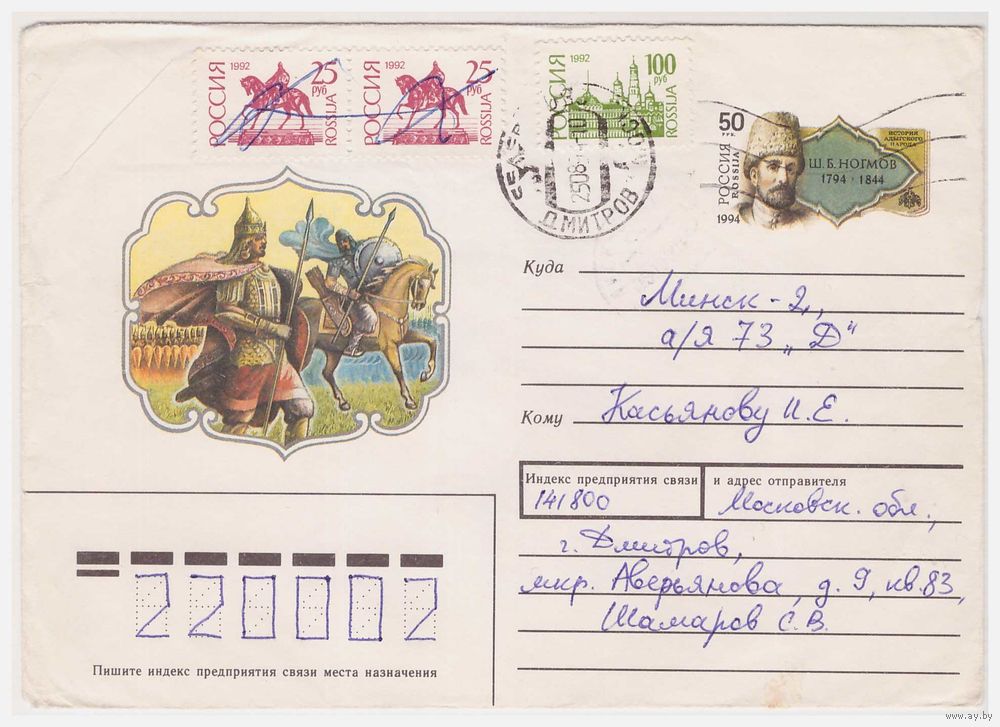 РОССИЯ 1992 25 руб ROSSIJA
РОССИЯ 1992 25 руб ROSSIJA
РОССИЯ 1992 100 руб ROSSIJA
ДМИТРОВ
50 РУБ. РОССИЯ ROSSIJA 1994
ИСТОРИЯ
АДЫГСКОГО
НАРОДА
Ш. Б. НОГМОВ
1794 · 1844
Куда Минск-2,
а/я 73 „Д"
Кому Касьянову И.Е.
Индекс предприятия связи и адрес отправителя
141800 Московск. обл.,
г. Дмитров,
мкр. Аверьянова, д. 9, кв. 83,
Шамаров С.В.
220002
Пишите индекс предприятия связи места назначения
www.ay.by